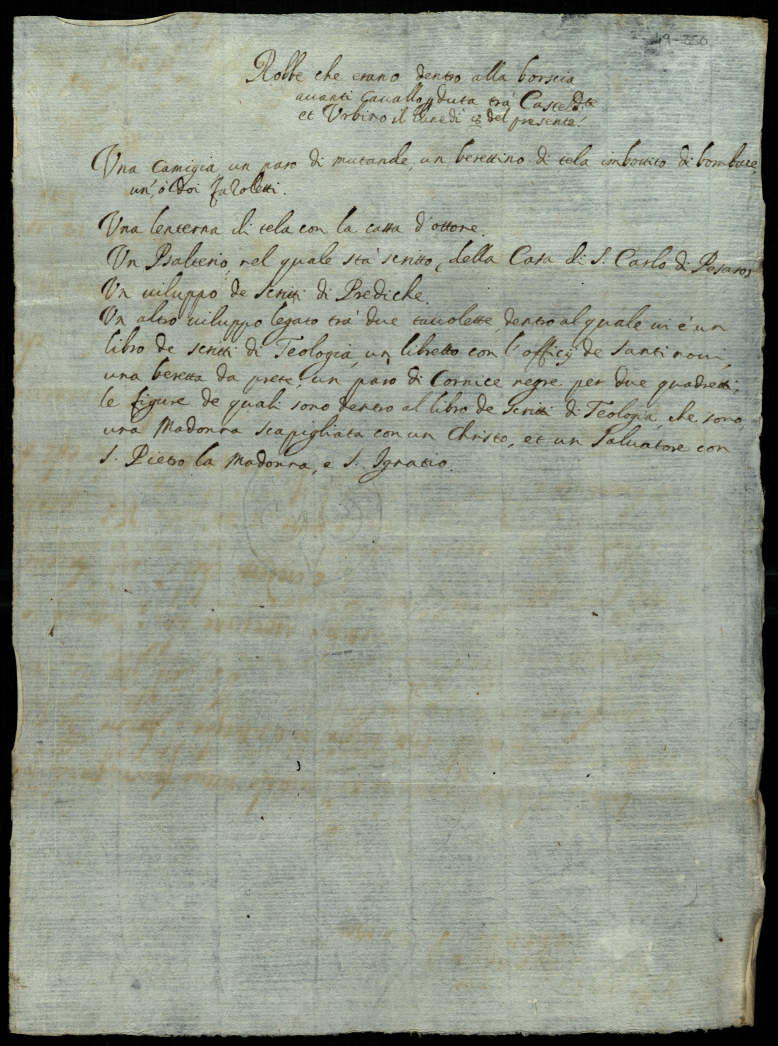 49-350
Robbe che erano dentro alla borscia
avanti cavallo ꝑduta trà Casteldte
et Urbino il lunedì del presente.
Una camigia, un paro di mutande, un berettino di tela imbottito di bombace,
un', ò doi fazoletti.
Una lenterna di tela con la cassa d'ottone.
Un Psalterio, nel quale stà scritto, della Casa di S. Carlo di Pesaro,
Un viluppo de scritti di Prediche.
Un altro viluppo legato trà due tavolette, dentro al quale vi è un
libro de scritti di Teologia, un libretto con l'officij de santi novi,
una beretta da prete, un paro di cornice negre per due quadretti,
le figure de quali sono dentro al libro de scritti di Teologia, che sono
una Madonna scapigliata con un Christo, et un Salvatore con
S. Pietro la Madonna, e S. Ignatio.